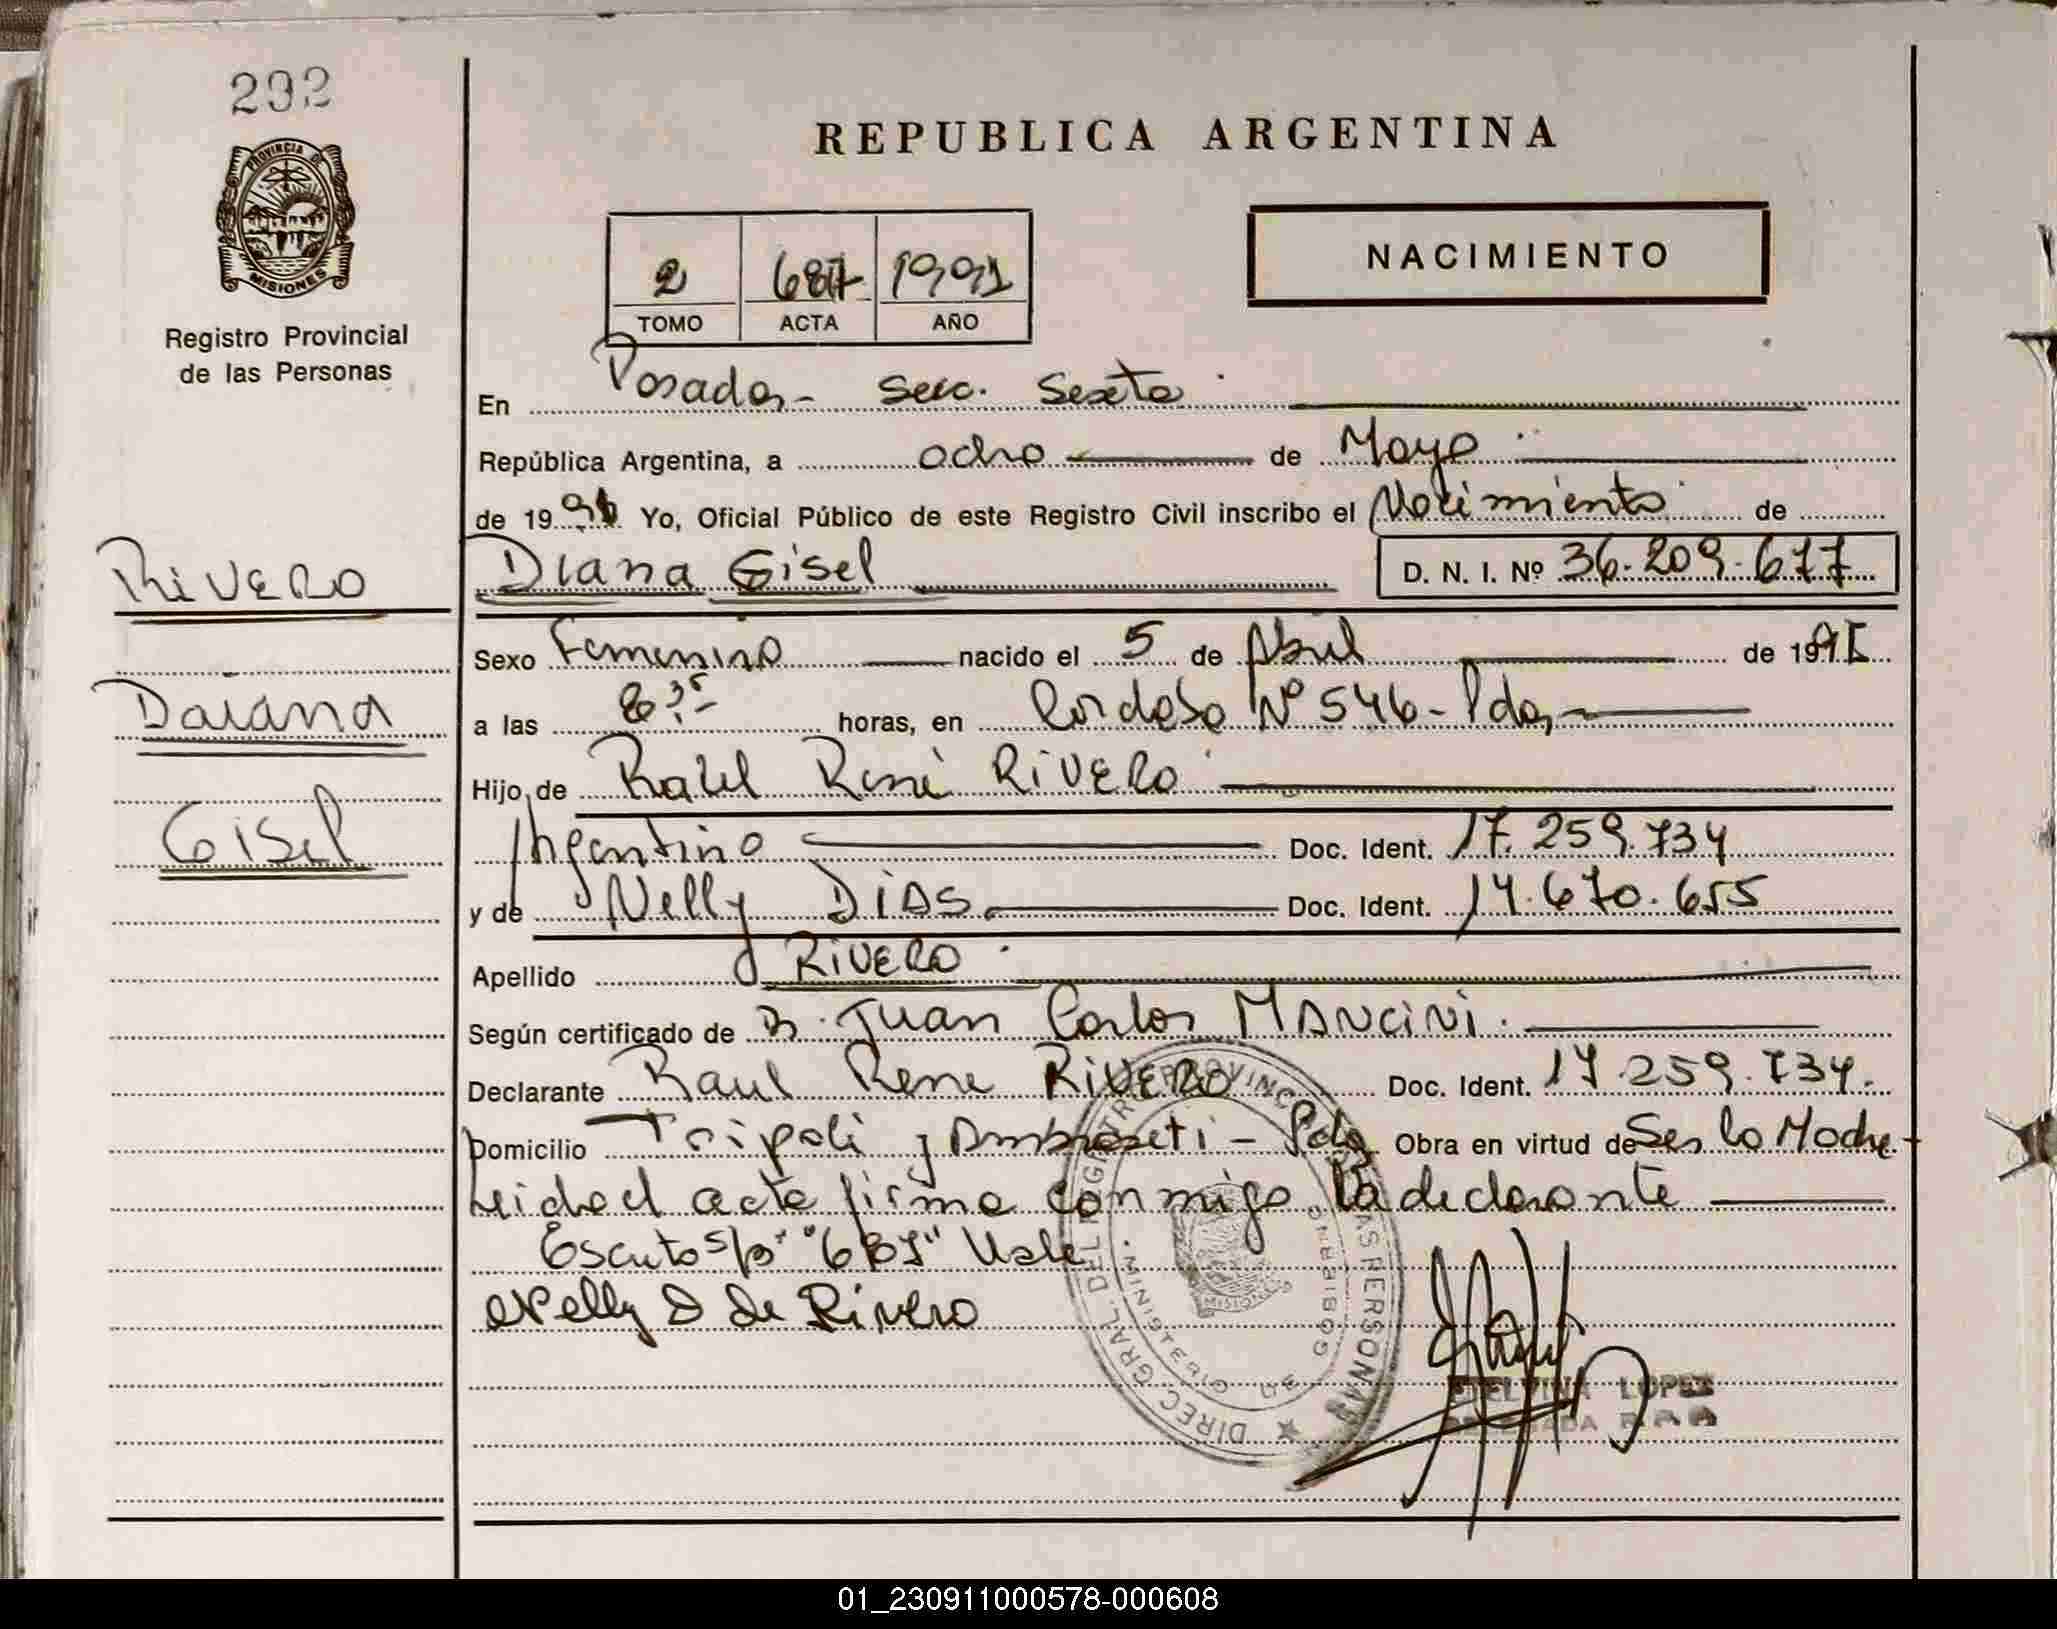 292
PROVINCIA DE
MISIONES
Registro Provincial
de las Personas
RIVERO
Daiana
Gisel
REPUBLICA ARGENTINA
NACIMIENTO
2 687 1991
TOMO ACTA AÑO
En Posadas - Secc. Sexta
República Argentina, a ocho de Mayo
de 1991 Yo, Oficial Público de este Registro Civil inscribo el Nacimiento de
Diana Gisel D. N. I. Nº 36.209.677
Sexo Femenino nacido el 5 de Abril de 1991
a las horas, en Cordoba Nº 546 - Pdas
Hijo de Raul René RIVERO
Argentino Doc. Ident. 17.259.734
y de Nelly DIAS Doc. Ident. 14.670.655
Apellido RIVERO
Según certificado de Dr. Juan Carlos MANCINI.
Declarante Raul Rene RIVERO Doc. Ident. 17.259.734.
Domicilio Tripoli y Ambroseti - Pdas Obra en virtud de Ser la Madre
acta firma conmigo la declarante
Escrito s/r "687" Vale
Nelly D de Rivero
DIREC. GRAL. DEL REGISTRO PROVINCIAL DE LAS PERSONAS
MINISTERIO DE GOBIERNO
MISIONES
ETELVINA LOPEZ
DELEGADA R.P.P.
01_230911000578-000608